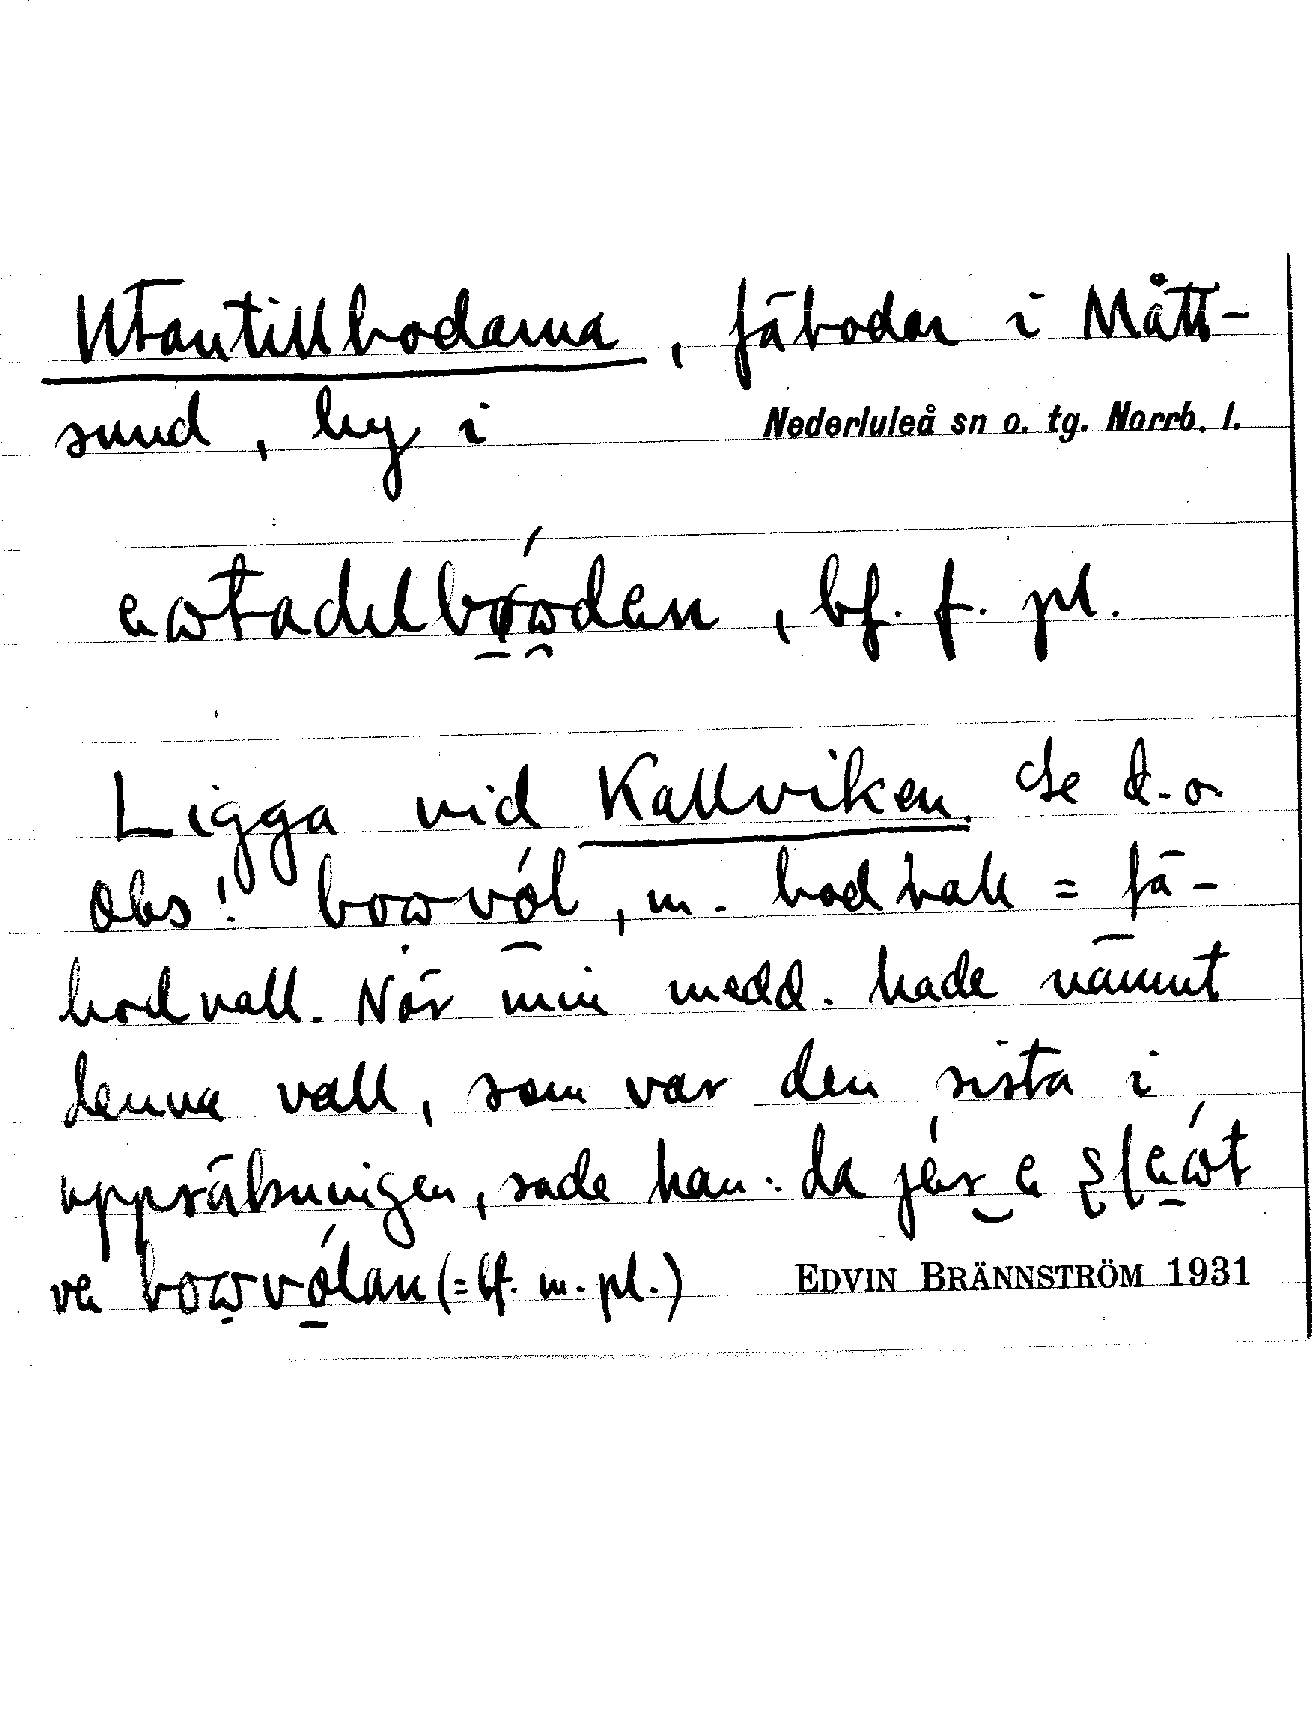 Utantillbodarna, fäbodar i Mått-
sund, by i Nederluleå sn o. tg. Norrb. l.
, bf. f. pl.
Ligga vid Kallviken. Se d. o
Obs! bowvól, m. bodvall = fä-
bodvall. När min medd. hade nämnt
denna vall, som var den sista i
uppräkningen, sade han: da
ve bowvólan (= bf. m. pl.) EDVIN BRÄNNSTRÖM 1931